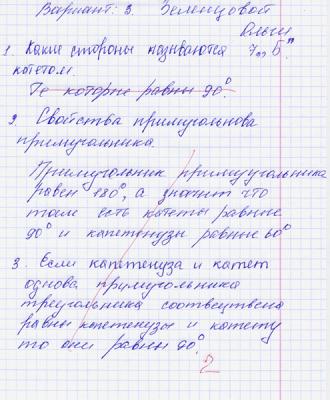 Вариант: 3. Зеленцовой
Ольги
1. Какие стороны называются 7 "Б".
катетом.
Те которые равны 90°.
2. Свойства примиугольнова
примиугольника.
Примиугольник примиуугольника
равен 180°, а значит что
там есть катеты равные
90° и капетенузы равные 60°
3. Если капетенуза и катет
однова примиугольника
треугольника соотвецтвена
равны капетенузы и катету
то они равны 90°.
2